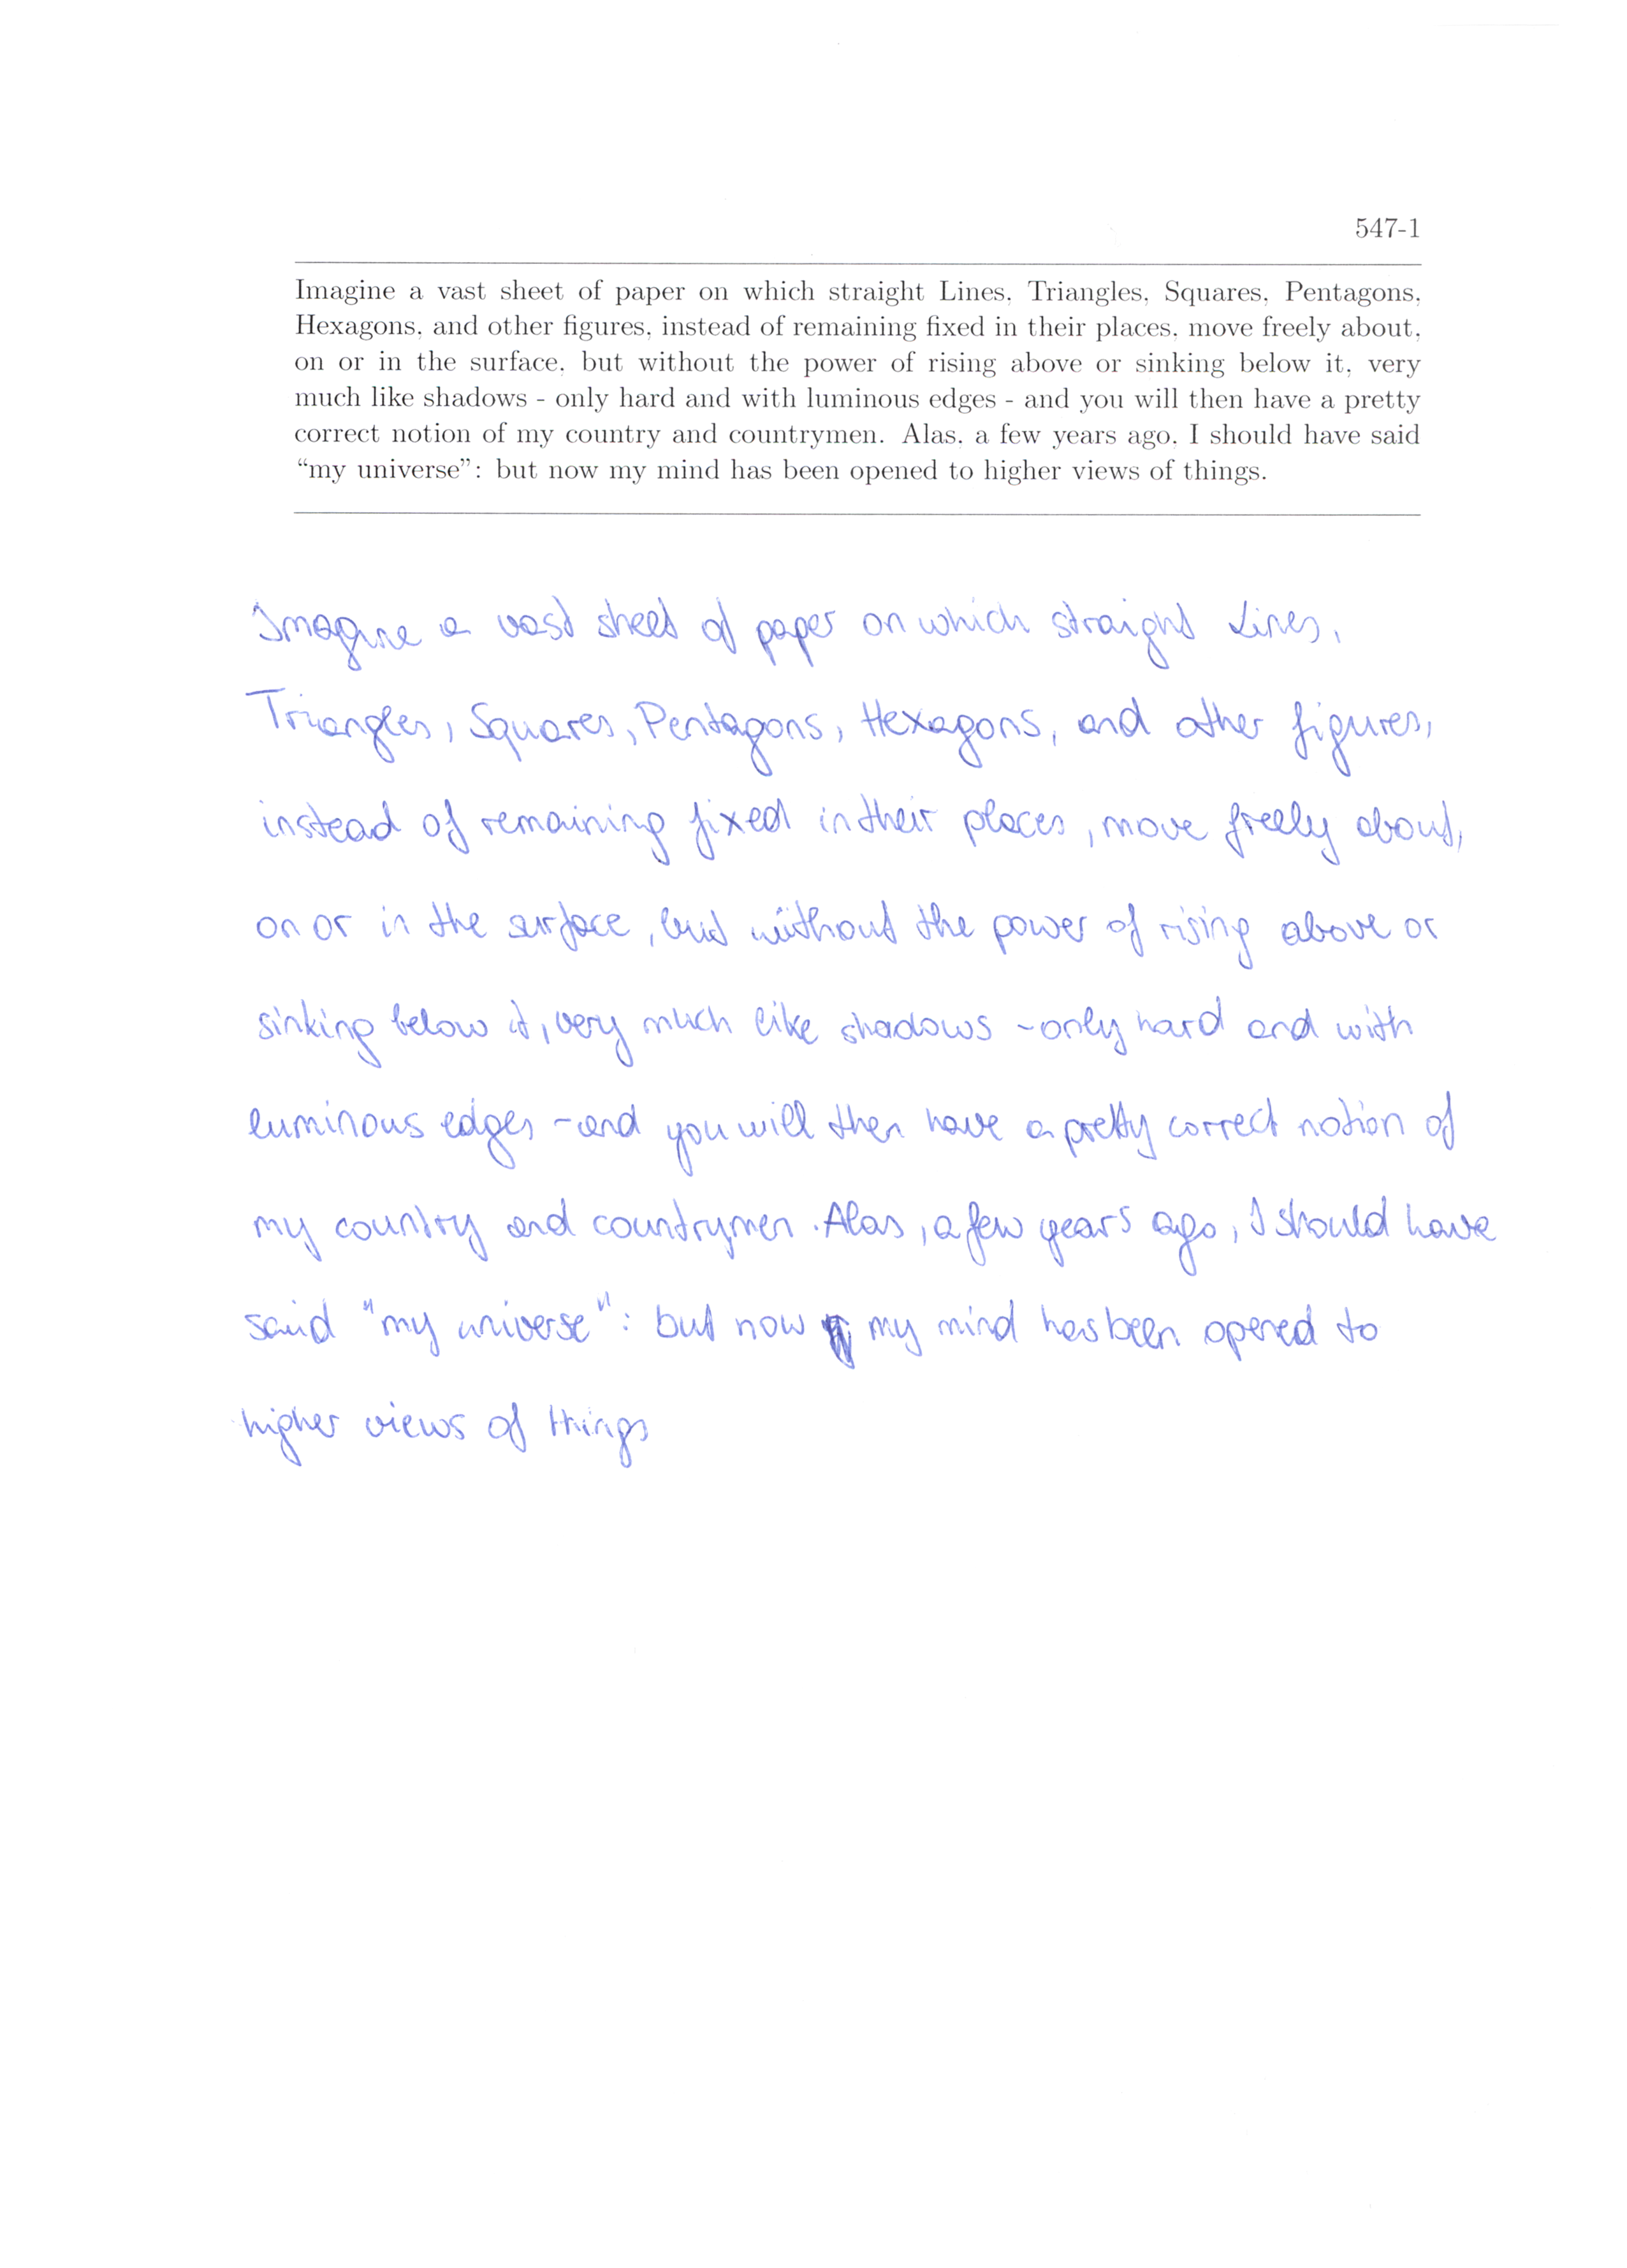 547-1
Imagine a vast sheet of paper on which straight Lines, Triangles, Squares, Pentagons,
Hexagons, and other figures, instead of remaining fixed in their places, move freely about,
on or in the surface, but without the power of rising above or sinking below it, very
much like shadows - only hard and with luminous edges - and you will then have a pretty
correct notion of my country and countrymen. Alas, a few years ago, I should have said
“my universe”: but now my mind has been opened to higher views of things.
Imagine a vast sheet of paper on which straight Lines,
Triangles, Squares, Pentagons, Hexagons, and other figures,
instead of remaining fixed in their places, move freely about,
on or in the surface, but without the power of rising above or
sinking below it, very much like shadows - only hard and with
luminous edges - and you will then have a pretty correct notion of
my country and countrymen. Alas, a few years ago, I should have
said "my universe": but now my mind has been opened to
higher views of things